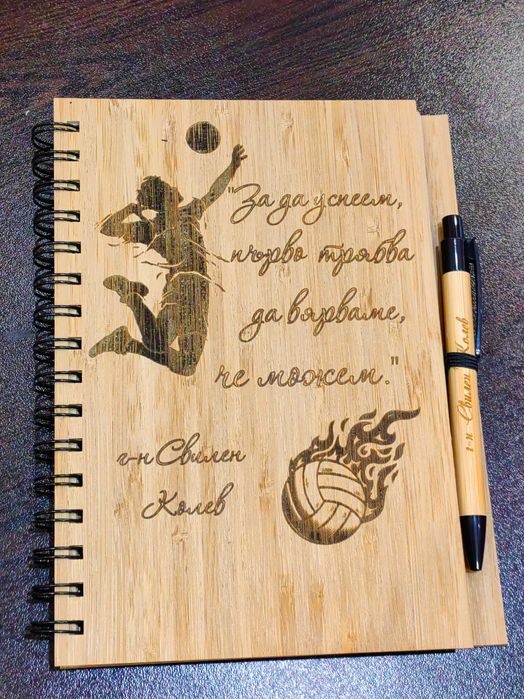 "За да успеем,
първо трябва
да вярваме,
че можем."
г-н Свилен
Колев
г-н Свилен Колев